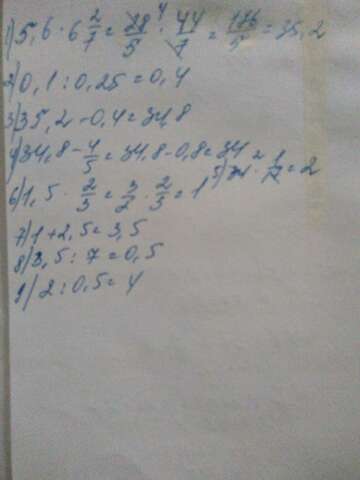 1) 5,6 · 6 2/7 = 28/5 · 44/7 = 176/5 = 35,2
2) 0,1 : 0,25 = 0,4
3) 35,2 - 0,4 = 34,8
4) 34,8 - 4/5 = 34,8 - 0,8 = 34
5) 34 · 1/17 = 2
6) 1,5 · 2/3 = 3/2 · 2/3 = 1
7) 1 + 2,5 = 3,5
8) 3,5 : 7 = 0,5
9) 2 : 0,5 = 4